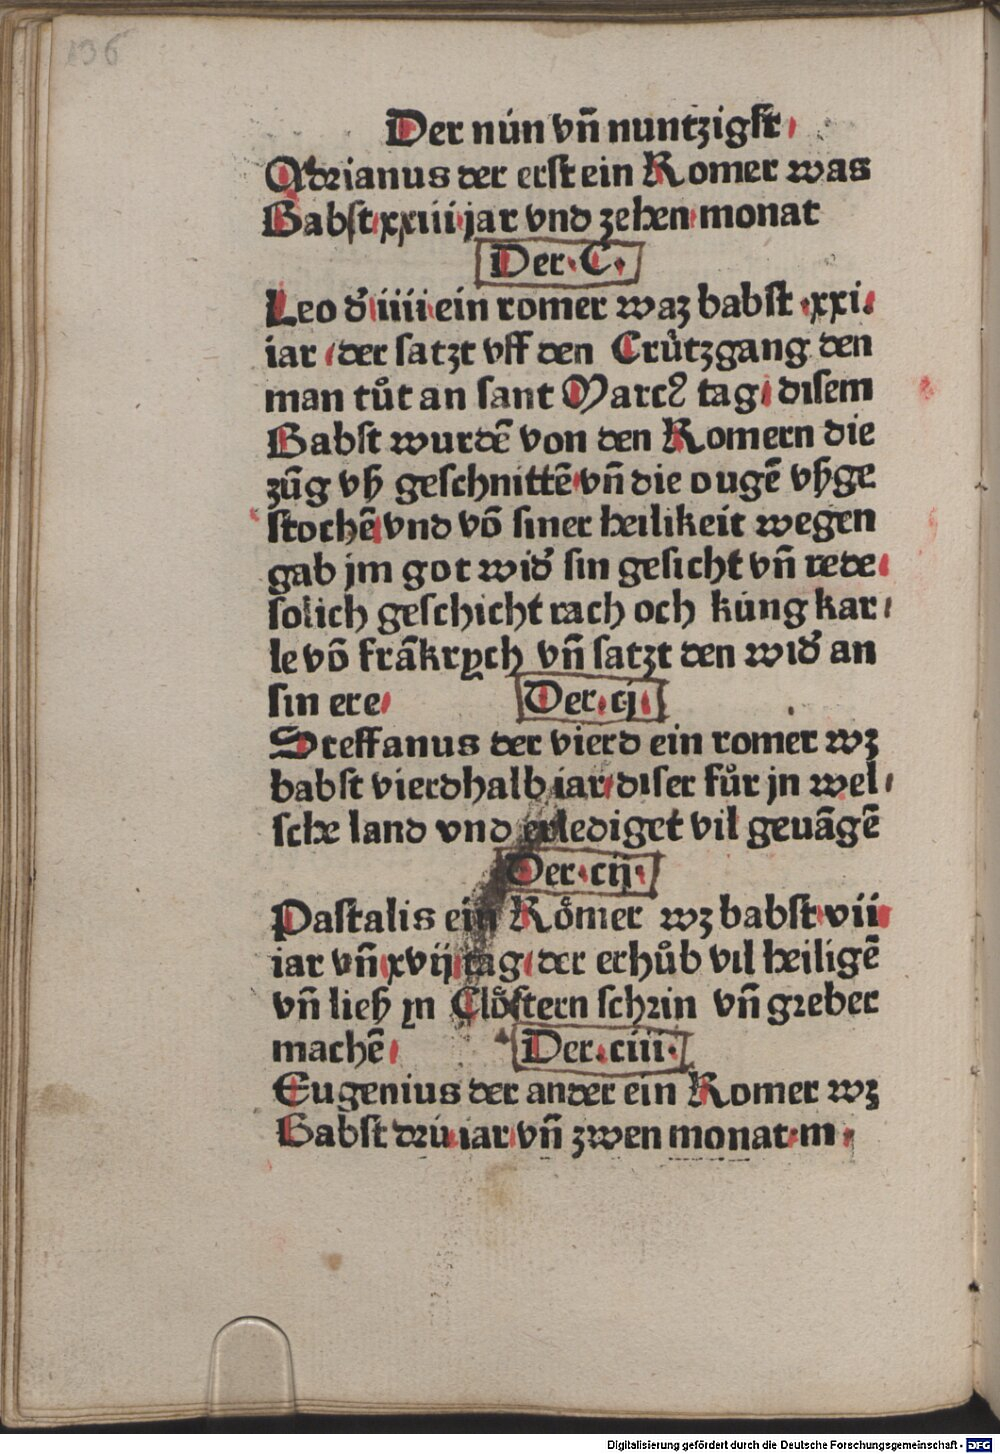 136
Der nún vn̄ nuntzigſt
Adrianus der erſt ein Romer was
Babſt xxiii jar vnd zehen monat
Der · C ·
Leo d' iiii ein romer waz babſt · xxi.
iar der ſatzt vff den Crützgang den
man tůt an ſant Marcꝰ tag diſem
Babſt wurdē von den Romern die
zūg vß geſchnittē vn̄ die ougē vßge
ſtochē vnd vō ſiner heilikeit wegen
gab jm got wid' ſin geſicht vn̄ rede
ſolich geſchicht rach och kúng kar
le vō frākrych vn̄ ſatzt den wid' an
ſin ere
Der · cj ·
Steffanus der vierd ein romer wz
babſt vierdhalb iar diſer fůr jn wel
ſche land vnd erlediget vil geuāgē
Der · cij ·
Paſtalis ein Rőmer wz babſt vii
iar vn̄ xvij tag der erhůb vil heiligē
vn̄ ließ yn Clőſtern ſchrin vn̄ greber
machē
Der · ciii ·
Eugenius der ander ein Romer wz
Babſt drú iar vn̄ zwen monat · m
Digitalisierung gefördert durch die Deutsche Forschungsgemeinschaft - DFG